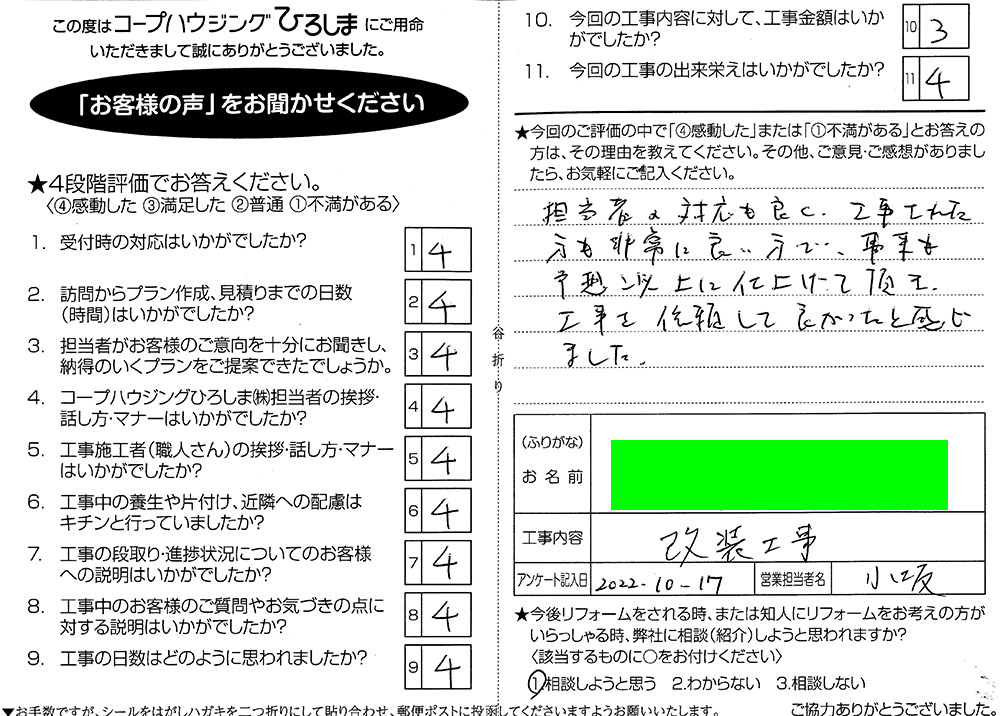 この度はコープハウジングひろしまにご用命
いただきまして誠にありがとうございました。
「お客様の声」をお聞かせください
★4段階評価でお答えください。
〈④感動した ③満足した ②普通 ①不満がある〉
1. 受付時の対応はいかがでしたか?
1 4
2. 訪問からプラン作成、見積りまでの日数
（時間）はいかがでしたか?
2 4
3. 担当者がお客様のご意向を十分にお聞きし、
納得のいくプランをご提案できたでしょうか。
3 4
4. コープハウジングひろしま㈱担当者の挨拶・
話し方・マナーはいかがでしたか?
4 4
5. 工事施工者（職人さん）の挨拶・話し方・マナー
はいかがでしたか?
5 4
6. 工事中の養生や片付け、近隣への配慮は
キチンと行っていましたか?
6 4
7. 工事の段取り・進捗状況についてのお客様
への説明はいかがでしたか?
7 4
8. 工事中のお客様のご質問やお気づきの点に
対する説明はいかがでしたか?
8 4
9. 工事の日数はどのように思われましたか?
9 4
▼お手数ですが、シールをはがしハガキを二つ折りにして貼り合わせ、郵便ポストに投函してくださいますようお願いいたします。
谷折り
10. 今回の工事内容に対して、工事金額はいか
がでしたか?
10 3
11. 今回の工事の出来栄えはいかがでしたか?
11 4
★今回のご評価の中で「④感動した」または「①不満がある」とお答えの
方は、その理由を教えてください。その他、ご意見・ご感想がありまし
たら、お気軽にご記入ください。
担当者の対応も良く、工事された
方も非常に良い方で、出来も
予想以上に仕上げて頂き、
工事を依頼して良かったと感じ
ました。
（ふりがな）
お名前
工事内容 改装工事
アンケート記入日 2022-10-17 営業担当者名 小坂
★今後リフォームをされる時、または知人にリフォームをお考えの方が
いらっしゃる時、弊社に相談（紹介）しようと思われますか?
〈該当するものに○をお付けください〉
1.相談しようと思う 2.わからない 3.相談しない
ご協力ありがとうございました。